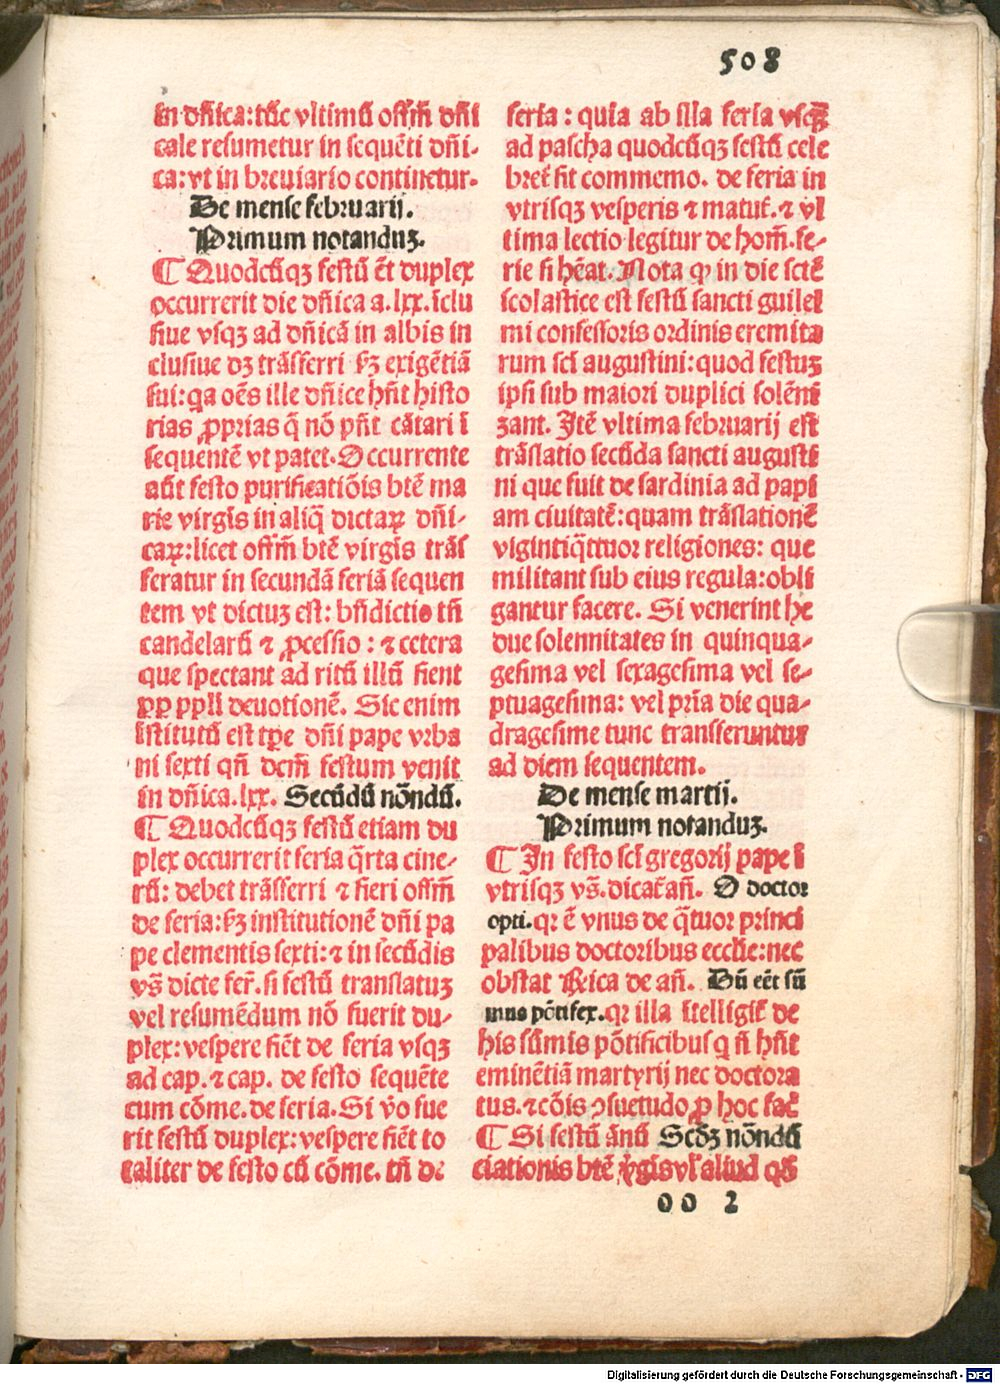 508
in dñica: tūc vltimū offm̄ dñi
cale resumetur in sequēti dñi-
ca: vt in breuiario continetur.
De mense februarij.
Primum notanduȝ.
¶ Quodcūqȝ festū ēt duplex
occurrerit die dñica a .lxx. īclu
siue vsqȝ ad dñicā in albis in
clusiue dȝ trāsferri ẜȝ exigētiā
sui: qa oēs ille dñice hñt histo
rias ꝓprias q̄ nō pñt cātari ī
sequentē vt patet. Occurrente
aūt festo purificatiōis btē ma
rie virgīs in aliq̄ dictaꝝ dñi-
caꝝ: licet offm̄ btē virgīs trās
feratur in secundā feriā sequen
tem vt dictuȝ est: bñdictio tñ
candelarū ⁊ ꝓcessio: ⁊ cetera
que spectant ad ritū illū fient
ꝓꝑ ppli deuotionē. Sic enim
īstitutū est tꝑe dñi pape vrba
ni sexti qñ dcm̄ festum venit
in dñica .lxx. Secūdū nōndū.
¶ Quodcūqȝ festū etiam du
plex occurrerit feria q̄rta cine-
rū: debet trāsferri ⁊ fieri offm̄
de feria: ẜȝ institutionē dñi pa
pe clementis sexti: ⁊ in secūdis
vs̄ dicte fer̄. si festū translatuȝ
vel resumēdum nō fuerit du-
plex: vespere fiēt de feria vsqȝ
ad cap. ⁊ cap. de festo sequēte
cum cōme. de feria. Si v̄o fue
rit festū duplex: vespere fiēt to
taliter de festo cū cōme. tñ de
feria: quia ab illa feria vsqȝ
ad pascha quodcūqȝ festū cele
bret̄ fit commemo. de feria in
vtrisqȝ vesperis ⁊ matut̄. ⁊ vl
tima lectio legitur de hom̄. fe-
rie si hēat. Nota ꝙ in die sctē
scolastice est festū sancti guilel
mi confessoris ordinis eremita
rum sci̅ augustini: quod festuȝ
ipsi sub maiori duplici solēni
zant. Itē vltima februarij est
trāslatio secūda sancti augusti
ni que fuit de sardinia ad papi
am ciuitatē: quam trāslationē
vigintiq̄ttuor religiones: que
militant sub eius regula: obli
gantur facere. Si venerint he
due solennitates in quinqua-
gesima vel sexagesima vel se-
ptuagesima: vel pria̅ die qua-
dragesime tunc transferuntur
ad diem sequentem.
De mense martij.
Primum notanduȝ.
¶ In festo sci̅ gregorij pape ī
vtrisqȝ vs̄. dicat̄ añ. O doctor
opti. qꝛ ē vnus de q̄tuor princi
palibus doctoribus ecclīe: nec
obstat Rica de añ. Dū eēt sū
mus pōtifex. qꝛ illa ītelligit̄ de
his sūmis pōtificibus q ñ hñt
eminētiā martyrij nec doctora
tus. ⁊ cōis ꝯsuetudo ꝓ hoc fac̄
¶ Si festū ānū Scdȝ nōndū
ciationis btē v̄gis vl̄ aliud qḋ
oo 2
Digitalisierung gefördert durch die Deutsche Forschungsgemeinschaft - DFG